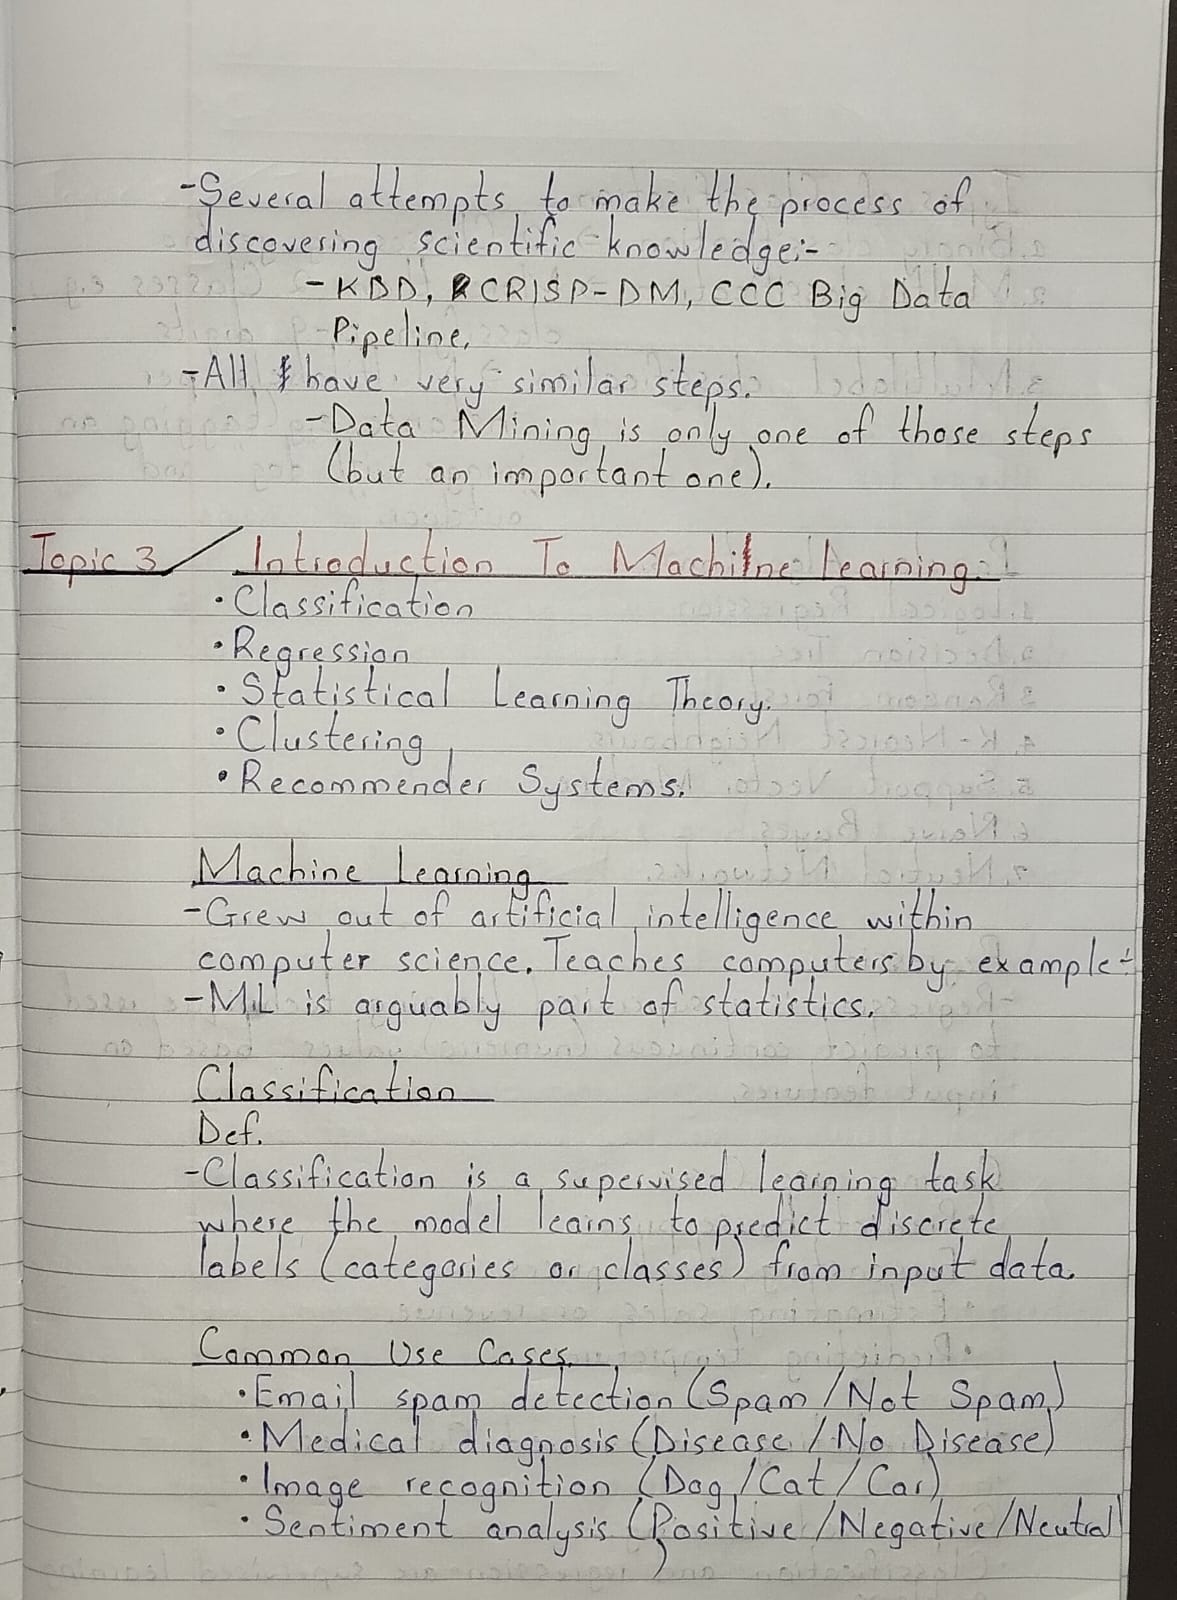 -Several attempts to make the process of
discovering scientific knowledge:-
-KDD, CRISP-DM, CCC Big Data
Pipeline.
-All have very similar steps.
-Data Mining is only one of those steps
(but an important one).
Topic 3 / Introduction To Machine Learning.
•Classification
•Regression
•Statistical Learning Theory.
•Clustering
•Recommender Systems.
Machine Learning
-Grew out of artificial intelligence within
computer science. Teaches computers by example-
-ML is arguably part of statistics.
Classification
Def.
-Classification is a supervised learning task
where the model learns to predict discrete
labels (categories or classes) from input data.
Common Use Cases.
•Email spam detection (Spam/Not Spam)
•Medical diagnosis (Disease/No Disease)
•Image recognition (Dog/Cat/Car)
•Sentiment analysis (Positive/Negative/Neutral
)